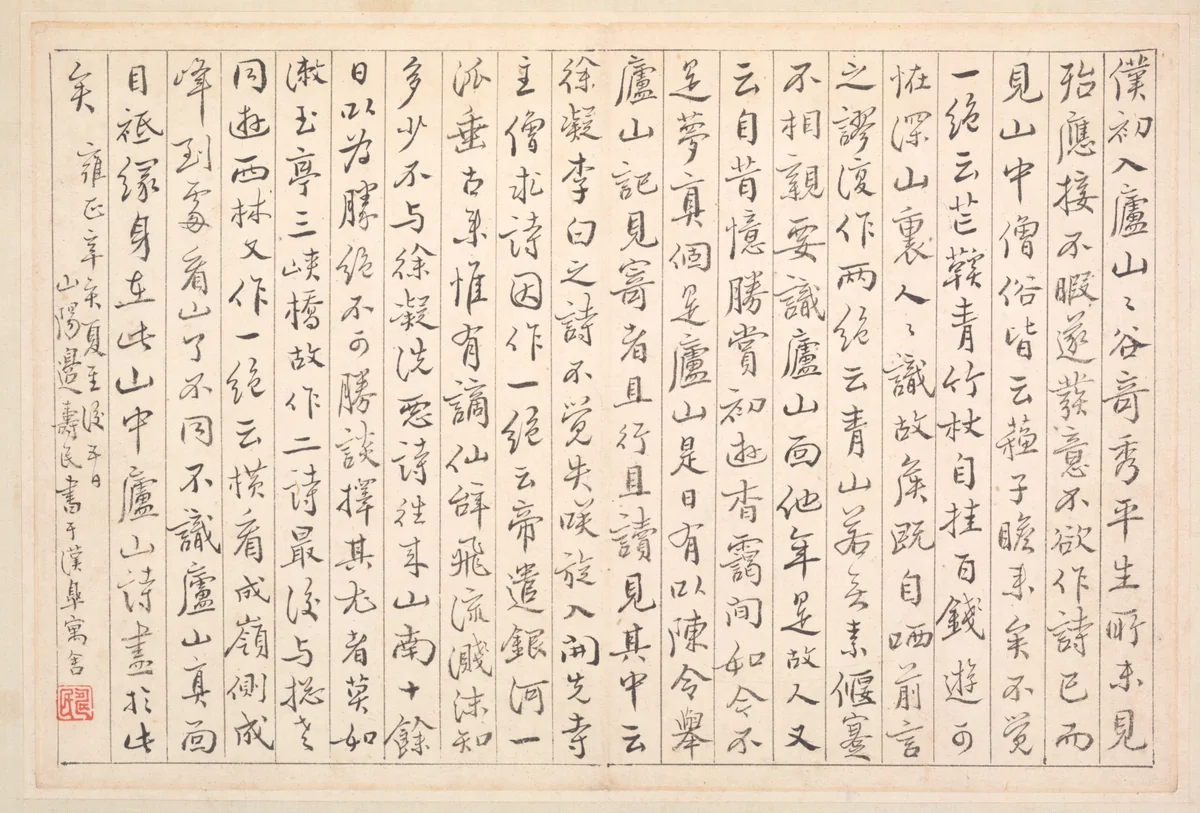 僕初入廬山〻谷奇秀平生所未見
殆應接不暇遂發意不欲作詩已而
見山中僧俗皆云蘓子瞻来矣不覺
一絕云芒鞵青竹杖自挂百錢遊可
恠深山裏人〻識故矦既自哂前言
之謬復作兩絕云青山若無素偃蹇
不相親要識廬山面他年是故人又
云自昔憶勝賞初遊杳靄間如今不
是夢真個是廬山是日有以陳令舉
廬山記見寄者且行且讀見其中云
徐凝李白之詩不覺失咲旋入開先寺
主僧求詩因作一絕云帝遣銀河一
派垂古来惟有謫仙辞飛流濺沫知
多少不与徐凝洗惡詩往来山南十餘
日以為勝絕不可勝談擇其尤者莫如
漱玉亭三峽橋故作二詩最後与摠老
同遊西林又作一絕云橫看成嶺側成
峰到處看山了不同不識廬山真面
目祗緣身在此山中廬山詩盡於此
矣
雍正辛亥夏至後五日
山陽邊壽民書于漢皋寓舍